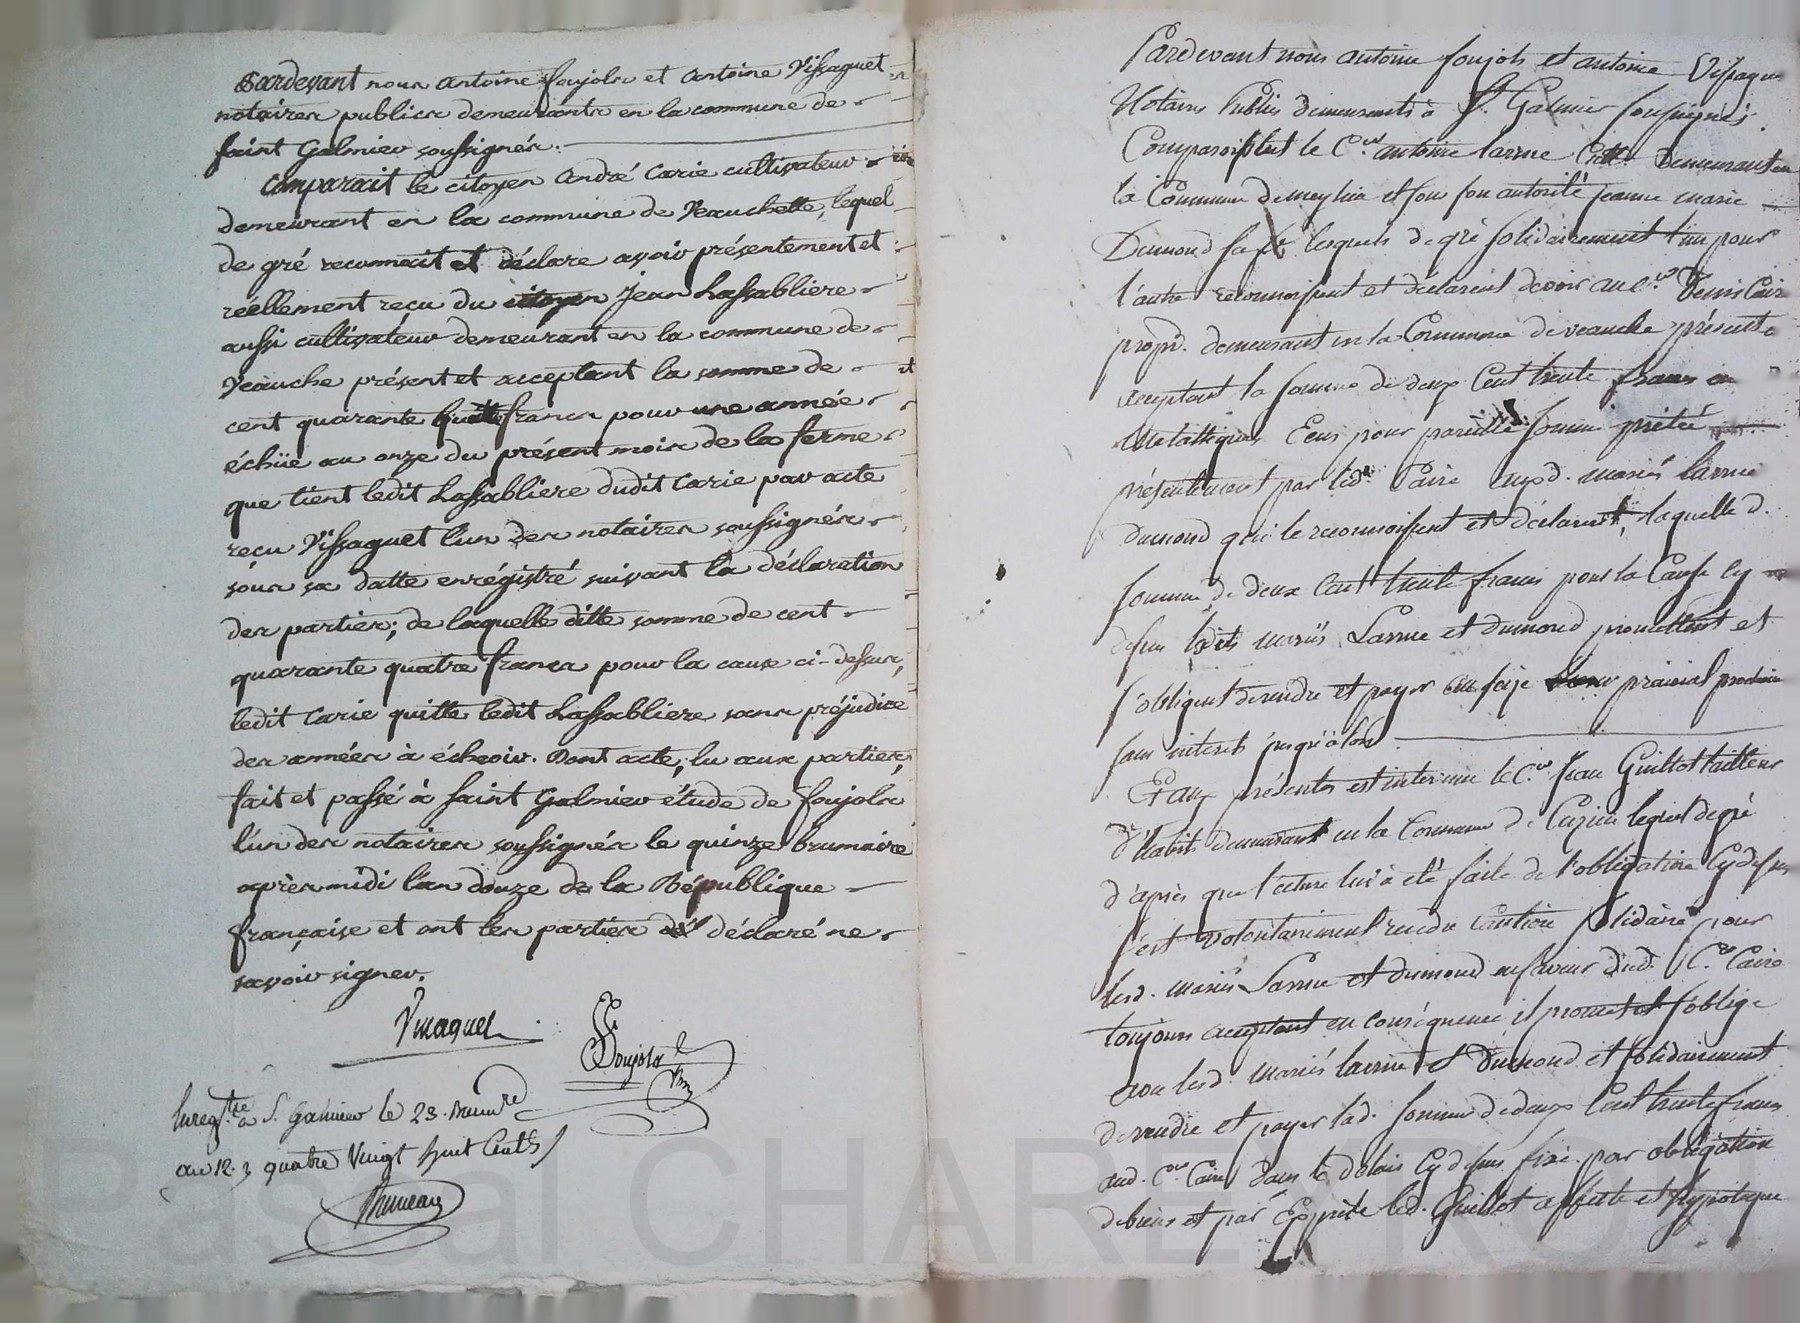 Pardevant nous Antoine foujols et Antoine Vissaguet
notaires publics demeurants en la commune de
saint Galmier soussignés.
Comparait le citoyen André Carie cultivateur
demeurant en la commune de Veauchette, lequel
de gré reconnait et déclare avoir présentement et
réellement reçu du citoyen Jean Lassabliere
aussi cultivateur demeurant en la commune de
Veauche présent et acceptant la somme de
cent quarante quatre francs pour une année
échüe au onze du présent mois de la ferme
que tient ledit Lassabliere dudit Carie par acte
reçu Vissaguet l'un des notaires soussignés
sous sa datte enrégistré suivant la déclaration
des parties; de laquelle ditte somme de cent
quarante quatre francs pour la cause ci-dessus,
ledit Carie quitte ledit Lassabliere sans préjudice
des années à échoir. Dont acte, lu aux parties,
fait et passé à saint Galmier étude de foujols
l'un des notaires soussignés le quinze brumaire
après midi l'an douze de la République
française et ont les parties déclaré ne
savoir signer.
Vissaguet
Foujols
Enregtré à S. Galmier le 23. brumre
an 12. quatre Vingt huit Cents
Pardevant nous antoine foujols et antoine Vissaguet
Notaires Publics demeurants à St. Galmier soussignés
Comparoissent le Cen antoine larme demeurant en
la Commune de meylieu et sous son autorité jeanne marie
Dumond sa fe lesquels de gré solidairement l'un pour
l'autre reconnoissent et déclarent devoir au Cen Denis Caire
propre. demeurant en la Commune de veauche présent et
acceptant la somme de deux Cent trente francs en
métalliques Ecus pour pareille somme pretée
présentement par led. Caire auxd. mariés larme
dumond qui le reconnoissent et déclarent, laquelle d.
somme de deux Cent trente francs pour la Cause Cy
dessus lesdits mariés Larme et dumond promettent et
s'obligent de rendre et payer au seize prairial prochain
sans interets jusqu'alors
Et aux présentes est intervenu le Cen jean Guillot tailleur
d'habits demeurant en la Commune de Cuzieu lequel de gré
d'après que lecture lui a été faite de l'obligation Cy dessus
s'est volontairement rendu Caution solidaire pour
lesd. mariés Larme et dumond en faveur dud. Cen Caire
toujours acceptant en conséquence il promet et s'oblige
avec lesd. mariés larme et Dumond et solidairement
de rendre et payer lad. somme de deux Cent trente francs
aud. Cen Caire dans le délais Cy dessus fixé par obligation
de biens et par Exprès led. Guillot affecte et hypoteque